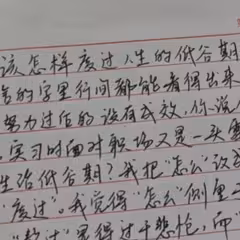 该怎样度过人生的低谷期
的字里行间都能看得出来
努力过后的没有成效,你说
实习时面对职场又是一头雾
生活低谷期?我把“怎么”改成
“度过”。我觉得“怎么”侧重
显得过于悲怆,而